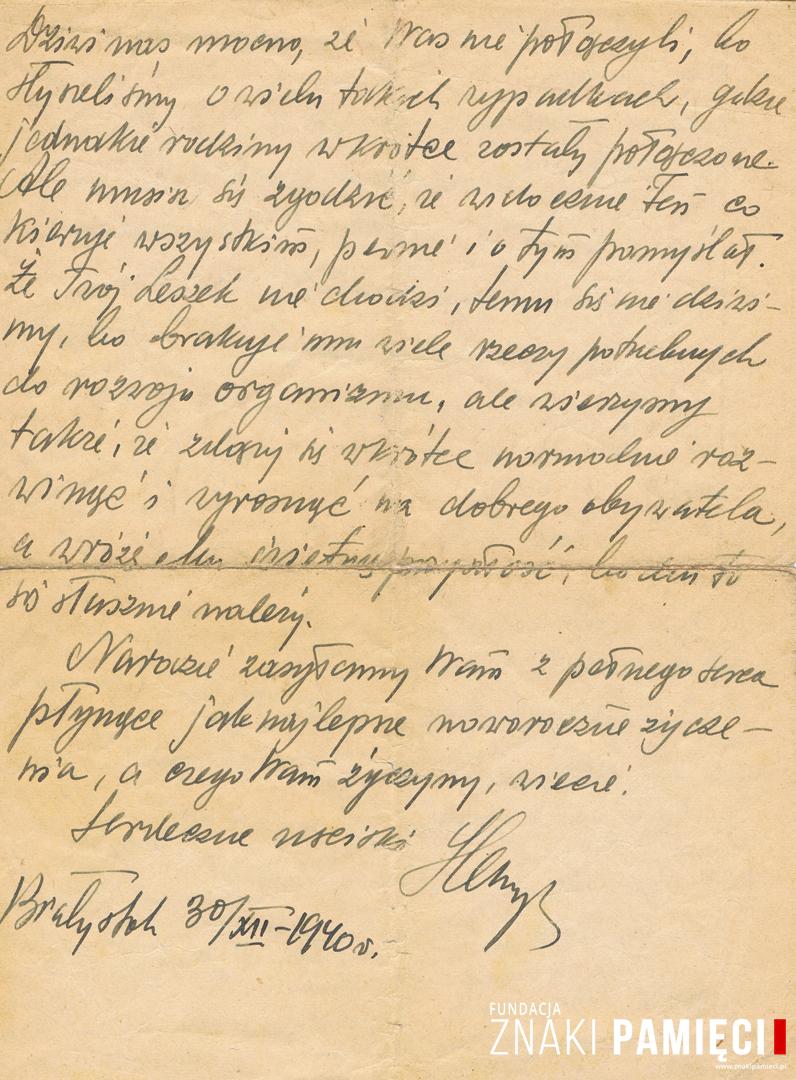 Dziwi nas mocno, że Was nie połączyli, bo
słyszeliśmy o wielu takich wypadkach, gdzie
jednakże rodziny wkrótce zostały połączone.
Ale musim się zgodzić, że widocznie Ten co
kieruje wszystkim, pewnie i o tym pomyślał.
Że Twój Leszek nie chodzi, temu się nie dziwi-
my, bo brakuje mu wiele rzeczy potrzebnych
do rozwoju organizmu, ale wierzymy
także, że zdąży się wkrótce normalnie roz-
winąć i wyrosnąć na dobrego obywatela,
a wróżę Mu świetną przyszłość, bo Mu to
się słusznie należy.
Narazie zasyłamy Wam z pełnego serca
płynące jak najlepsze noworoczne życze-
nia, a czego Wam życzymy, wiecie.
Serdeczne uściski
Białystok 30/XII-1940r.
FUNDACJA
ZNAKI PAMIĘCI
www.znakipamieci.pl